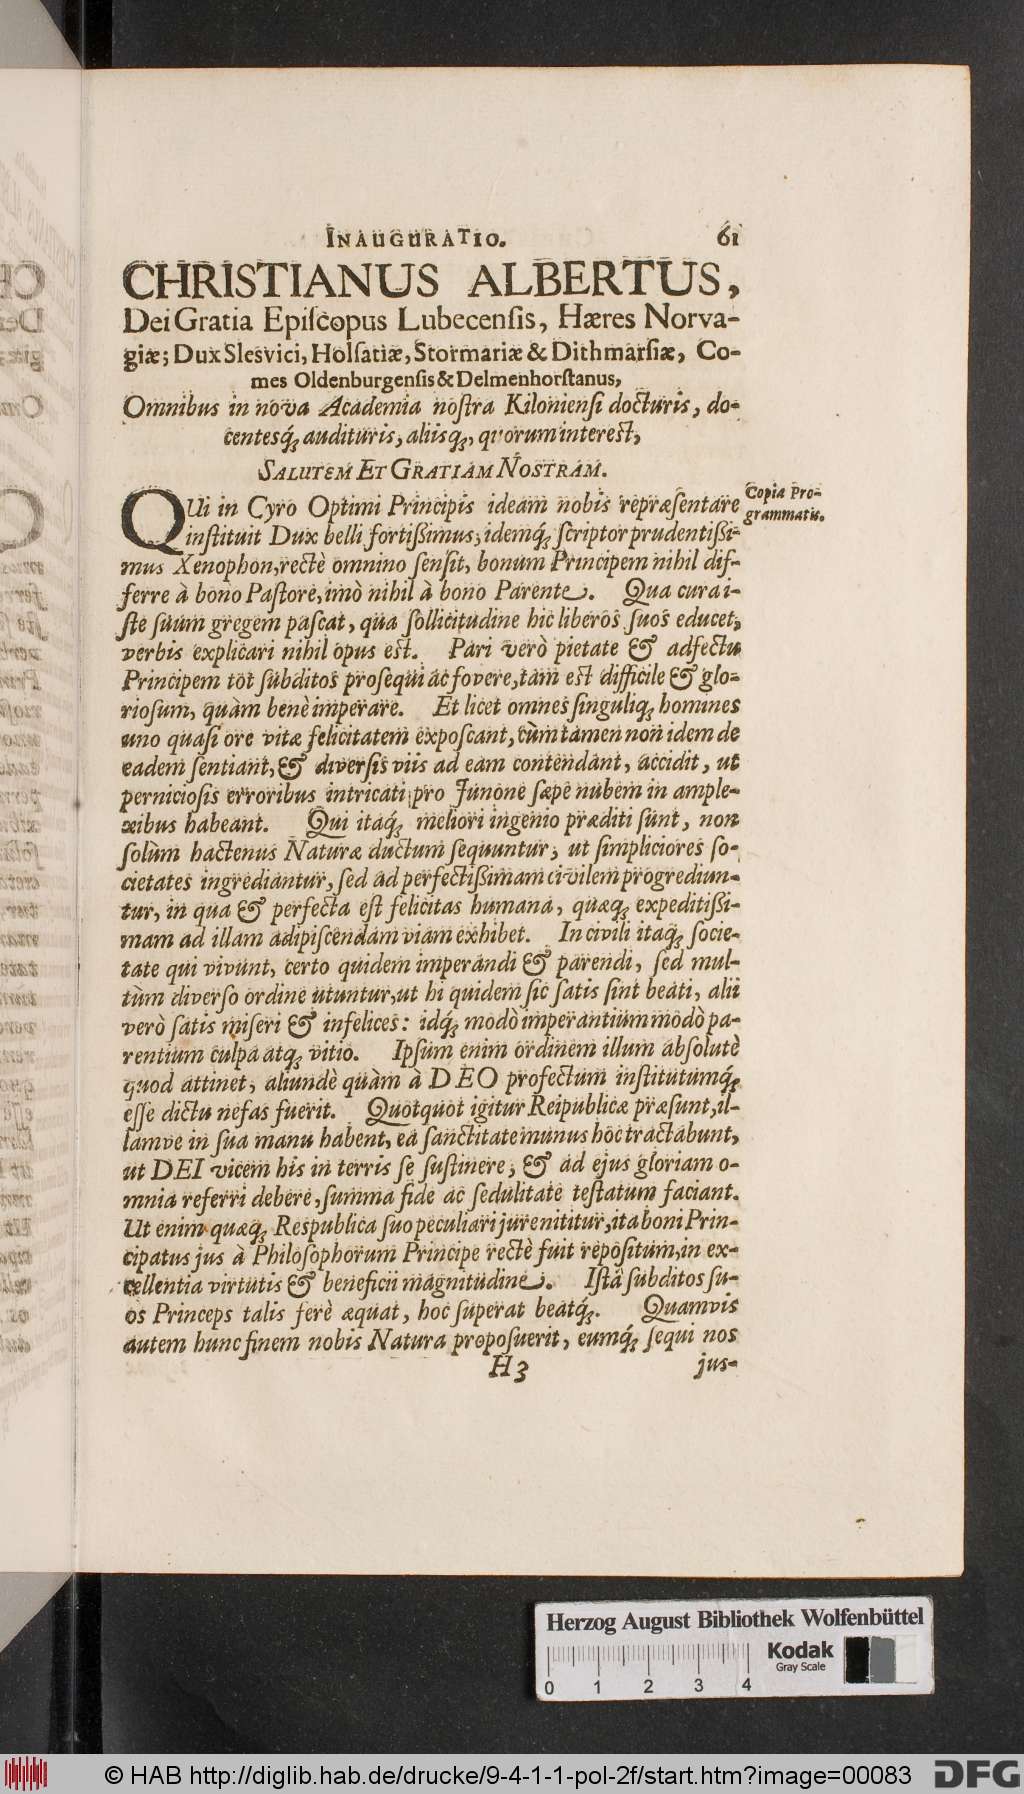 INAUGURATIO. 61
CHRISTIANUS ALBERTUS,
Dei Gratia Epiſcopus Lubecenſis, Hæres Norva-
giæ; Dux Slesvici, Holſatiæ, Stormariæ & Dithmarſiæ, Co-
mes Oldenburgenſis & Delmenhorſtanus,
Omnibus in nova Academia noſtra Kilonienſi docturis, do-
centesq́; audituris, aliisq́;, quorum intereſt,
SALUTEM ET GRATIAM NOSTRAM.
QUi in Cyro Optimi Principis ideam nobis repræſentare
Copia Pro-
grammatis.
inſtituit Dux belli fortiſſimus, idemq́; ſcriptor prudentiſſi-
mus Xenophon, rectè omnino ſenſit, bonum Principem nihil dif-
ferre à bono Paſtore, imò nihil à bono Parente. Qua cura i-
ſte ſuum gregem paſcat, qua ſollicitudine hic liberos ſuos educet,
verbis explicari nihil opus eſt. Pari verò pietate & adfectu
Principem tot ſubditos proſequi ac fovere, tam eſt difficile & glo-
rioſum, quàm benè imperare. Et licet omnes ſinguliq́; homines
uno quaſi ore vitæ felicitatem expoſcant, cùm tamen non idem de
eadem ſentiant, & diverſis viis ad eam contendant, accidit, ut
pernicioſis erroribus intricati pro Junone ſæpè nubem in ample-
xibus habeant. Qui itaq́; meliori ingenio præditi ſunt, non
ſolùm hactenus Naturæ ductum ſequuntur, ut ſimpliciores ſo-
cietates ingrediantur, ſed ad perfectiſſimam civilem progrediun-
tur, in qua & perfecta eſt felicitas humana, quæq́; expeditiſſi-
mam ad illam adipiſcendam viam exhibet. In civili itaq́; ſocie-
tate qui vivunt, certo quidem imperandi & parendi, ſed mul-
tùm diverſo ordine utuntur, ut hi quidem ſic ſatis ſint beati, alii
verò ſatis miſeri & infelices: idq́; modò imperantium modò pa-
rentium culpa atq́; vitio. Ipſum enim ordinem illum abſolutè
quod attinet, aliundè quàm à DEO profectum inſtitutumq́;
eſſe dictu nefas fuerit. Quotquot igitur Reipublicæ præſunt, il-
lamve in ſua manu habent, ea ſanctitate munus hoc tractabunt,
ut DEI vicem his in terris ſe ſuſtinere, & ad ejus gloriam o-
mnia referri debere, ſumma fide ac ſedulitate teſtatum faciant.
Ut enim quæq́; Respublica ſuo peculiari jure nititur, ita boni Prin-
cipatus jus à Philoſophorum Principe rectè fuit repoſitum, in ex-
cellentia virtutis & beneficii magnitudine. Iſtâ ſubditos ſu-
os Princeps talis ferè æquat, hoc ſuperat beatq́;. Quamvis
autem hunc finem nobis Natura propoſuerit, eumq́; ſequi nos
H 3 jus-
Herzog August Bibliothek Wolfenbüttel
0 1 2 3 4
Kodak
Gray Scale
© HAB http://diglib.hab.de/drucke/9-4-1-1-pol-2f/start.htm?image=00083
DFG